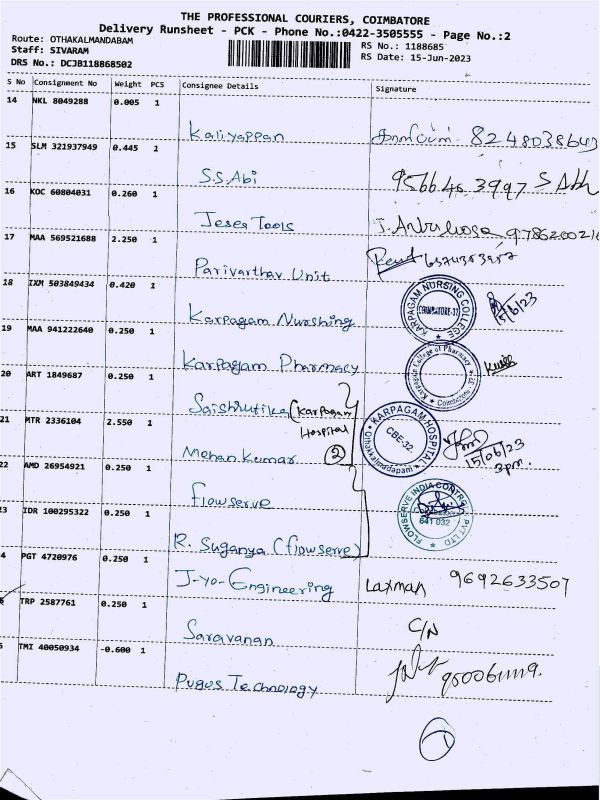 THE PROFESSIONAL COURIERS, COIMBATORE
Delivery Runsheet - PCK - Phone No.:0422-3505555 - Page No.:2
Route: OTHAKALMANDABAM
RS No.: 1188685
Staff: SIVARAM
RS Date: 15-Jun-2023
DRS No.: DCJB118868502
S No Consignment No Weight PCS Consignee Details Signature
14 NKL 8049288 0.005 1
Kaliyappan 8248038643
15 SLM 321937949 0.445 1
S.S.Abi 9566463997 S Abi
16 KOC 60804031 0.260 1
Jeses Tools 9786200216
17 MAA 569521688 2.250 1
Parivarthav Unit
18 IXM 503849434 0.420 1
KARPAGAM NURSING COLLEGE
COIMBATORE-32
Karpagam Nurshing
19 MAA 941222640 0.250 1
Karpagam College of Pharmacy
Coimbatore - 32
Karpagam Pharmacy
20 ART 1849687 0.250 1
Saishrutika (Karpagam
Hospital
21 MTR 2336104 2.550 1
KARPAGAM HOSPITAL
CBE-32.
Mohan Kumar 2
15/06/23
3pm.
22 AMD 26954921 0.250 1
Flowserve
FLOWSERVE INDIA CONTROLS PVT LTD
641 032
23 IDR 100295322 0.250 1
R. Suganya (flowserve)
4 PGT 4720976 0.250 1
J-yo-Engineering Laxman 9692633507
TRP 2587761 0.250 1
Saravanan C/N
TMI 40050934 -0.600 1
Pugos Technology